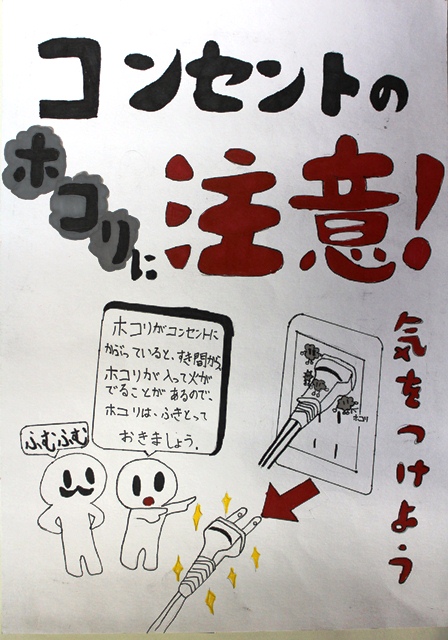 コンセントの
ホコリに
注意!
気をつけよう
ホコリがコンセントに
かぶっていると、すき間から
ホコリが入って火が
でることがあるので、
ホコリは、ふきとって
おきましょう。
ふむふむ
ホコリ